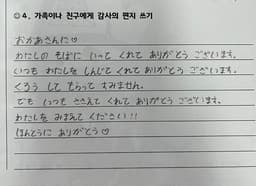 ☺4. 가족이나 친구에게 감사의 편지 쓰기
おかあさんに♡
わたしの そばに いって くれて ありがとう ございます.
いつも わたしを しんじて くれて ありがとう ございます.
くろう して もらって すみません.
でも いつも ささえて くれて ありがとう ございます.
わたしを みまえて ください!!
ほんとうに ありがとう♡